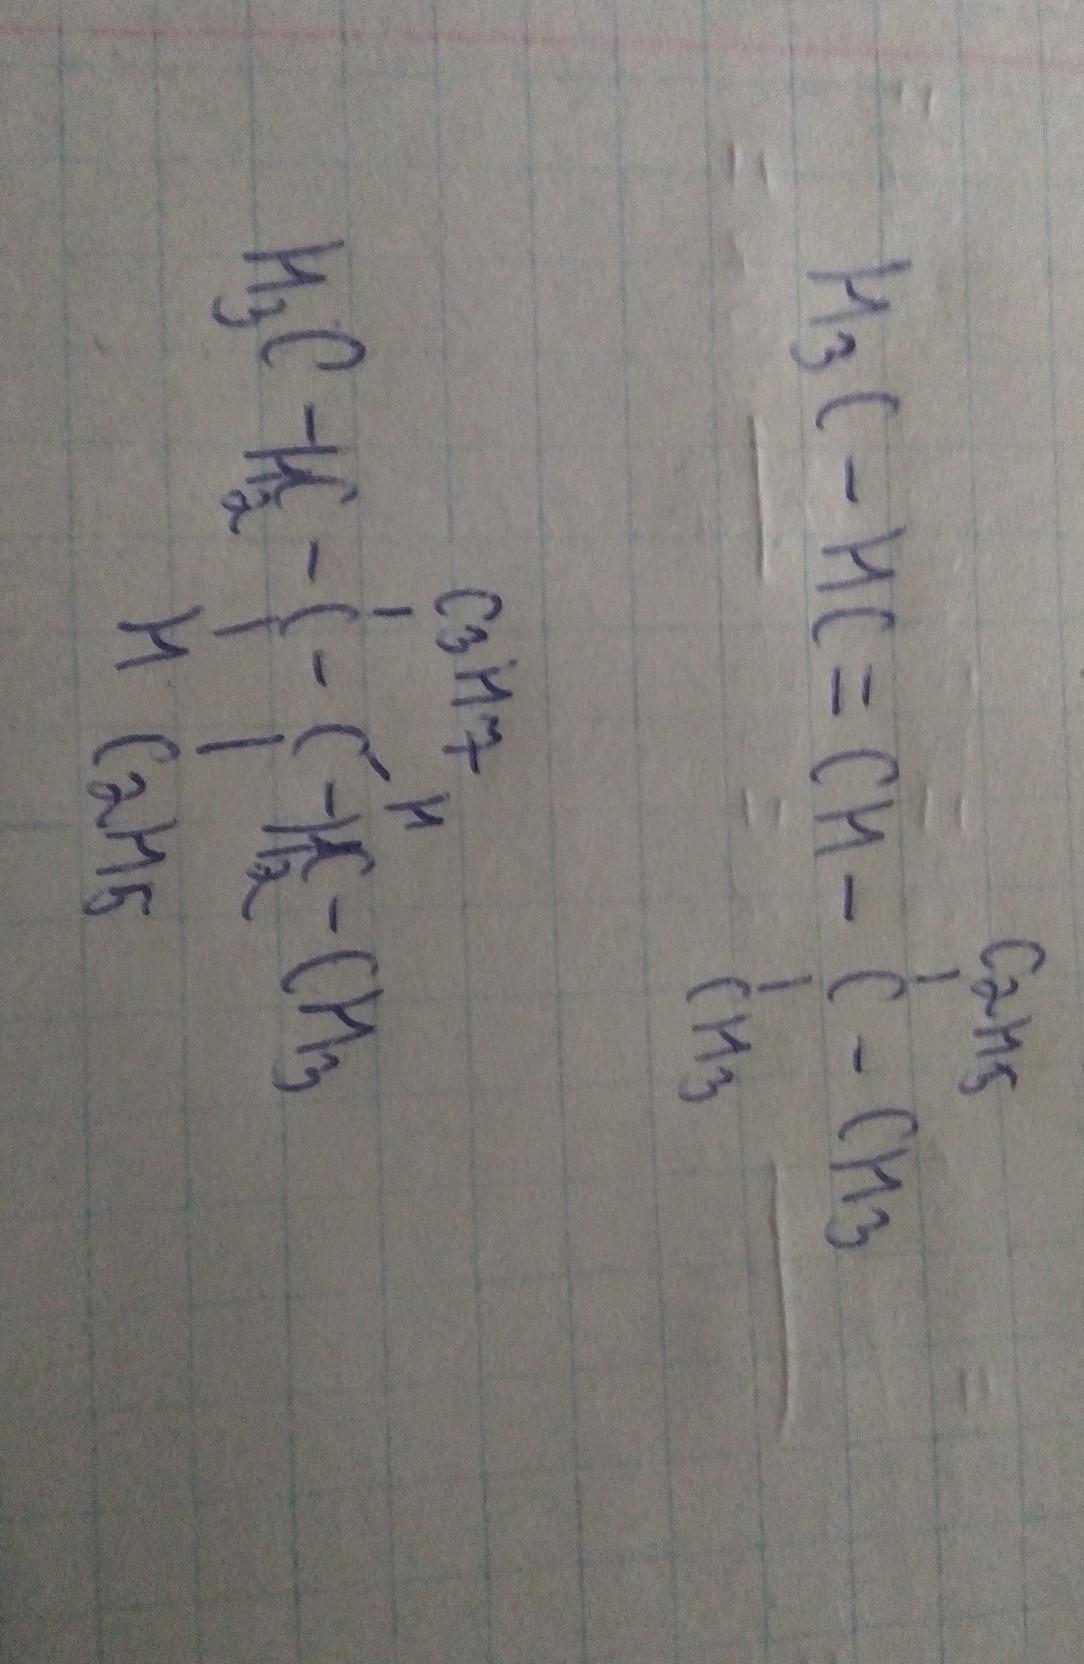 C2H5
H3C - HC = CH - C - CH3
CH3
C3H7
H
H3C - H2C - C - C - H2C - CH3
H C2H5